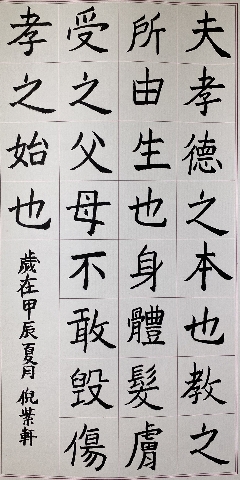 夫孝德之本也教之
所由生也身體髮膚
受之父母不敢毀傷
孝之始也
歲在甲辰夏月 倪業軒